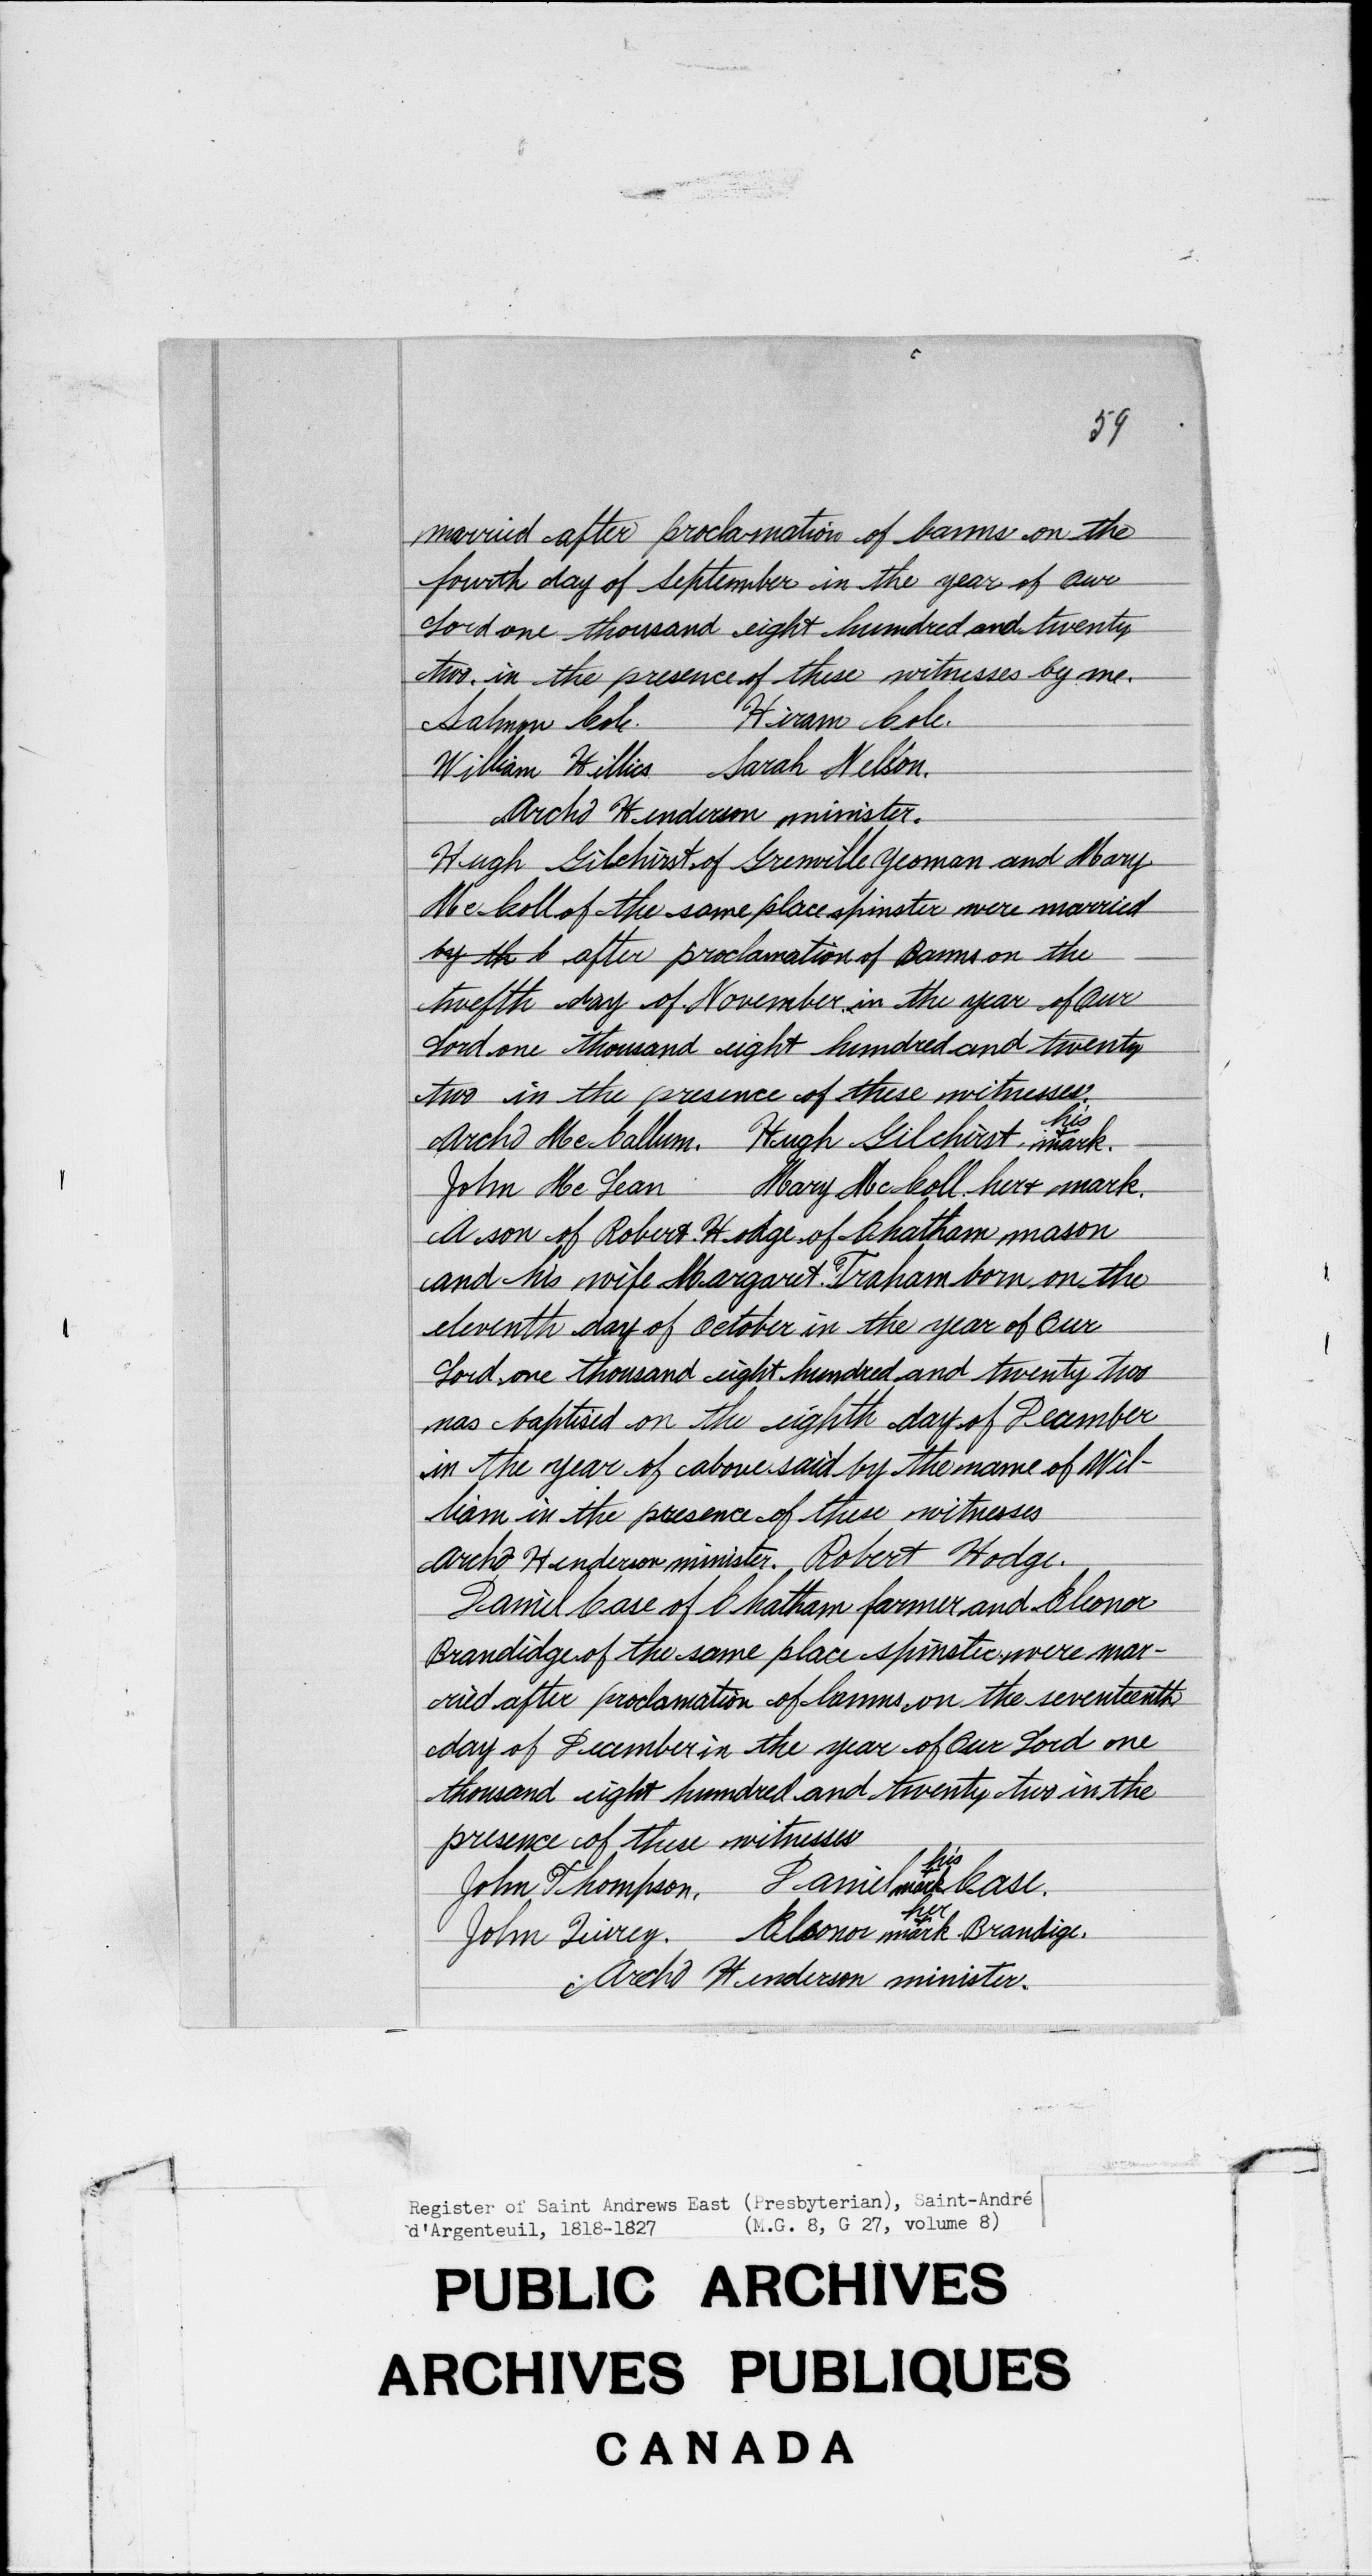 59
married after proclamation of banns on the
fourth day of September in the year of Our
Lord one thousand eight hundred and twenty
two. in the presence of these witnesses by me.
Salmon Cole. Hiram Cole.
William Hillies Sarah Nelson.
Archd Henderson minister.
Hugh Gilchirst of Grenville Yeoman and Mary
McColl of the same place spinster were married
by th b after proclamation of Banns on the
twefth day of November in the year of Our
Lord one thousand eight hundred and twenty
two in the presence of these witnesses.
his
Archd McCallum. Hugh Gilchirst + mark.
John McLean Mary McColl her + mark.
A son of Robert Hodge of Chatham mason
and his wife Margaret Traham born on the
eleventh day of October in the year of Our
Lord one thousand eight hundred and twenty two
was baptised on the eighth day of December
in the year of above said by the name of Wil-
liam in the presence of these witnesses
Archd Henderson minister. Robert Hodge.
Daniel Case of Chatham farmer and Eleonor
Brandidge of the same place spinster were mar-
ried after proclamation of banns on the seventeenth
day of December in the year of Our Lord one
thousand eight hundred and twenty two in the
presence of these witnesses
his
John Thompson. Daniel + mark Case.
her
John Eleonor + mark Brandige.
Archd Henderson minister.
Register of Saint Andrews East (Presbyterian), Saint-André
d'Argenteuil, 1818-1827 (M.G. 8, G 27, volume 8)
PUBLIC ARCHIVES
ARCHIVES PUBLIQUES
CANADA